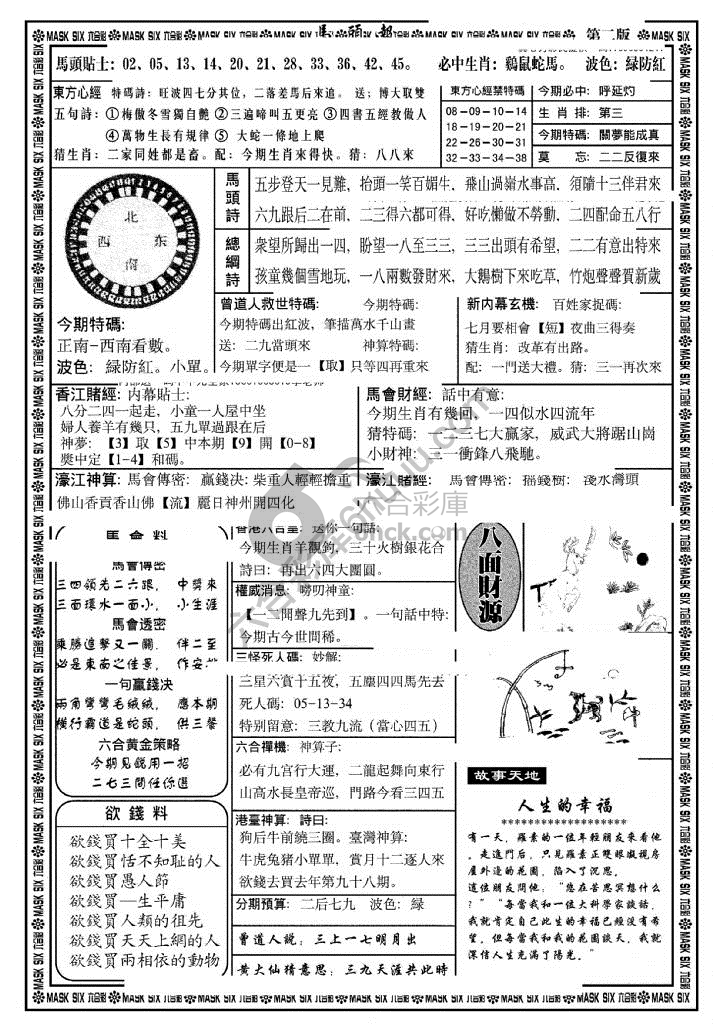 馬頭報
第二版
馬頭貼士：02、05、13、14、20、21、28、33、36、42、45。 必中生肖：鷄鼠蛇馬。 波色：緑防紅
東方心經 特碼詩：旺波四七分其位，二落差馬后來追。 送；博大取雙
五句詩：①梅傲冬雪獨自艷 ②三遍啼叫五更亮 ③四書五經教做人
④萬物生長有規律 ⑤ 大蛇一條地上爬
猜生肖：二家同姓都是畜。配：今期生肖來得快。猜：八八來
東方心經禁特碼
08－09－10－14
18－19－20－21
22－26－30－31
32－33－34－38
今期必中：呼延灼
生肖排：第三
今期特碼：關夢能成真
莫忘：二二反復來
北
西 东
南
今期特碼:
正南－西南看數。
波色：緑防紅。小單。
馬頭詩
五步登天一見難，抬頭一笑百媚生，飛山過嶺水事高，須隨十三伴君來
六九跟后二在前，二三得六都可得，好吃懶做不勞動，二四配命五八行
總綱詩
衆望所歸出一四，盼望一八至三三，三三出頭有希望，二二有意出特來
孩童幾個雪地玩，一八兩數發財來，大鵝樹下來吃草，竹炮聲聲賀新歲
曾道人救世特碼: 今期特碼:
今期特碼出紅波，筆描萬水千山畫
送：二九當頭來 神算特碼:
今期單字便是一【取】只等四再重來
新内幕玄機: 百姓家捉碼:
七月要相會【短】夜曲三得奏
猜生肖：改革有出路。
配：一門送大禮。猜：三一再次來
香江賭經: 内幕貼士:
八分二四一起走，小童一人屋中坐
婦人養羊有幾只，五九單過跟在后
神夢：【3】取【5】中本期【9】開【0-8】
獎中定【1-4】和碼。
馬會財經: 話中有意:
今期生肖有幾回，一四似水四流年
猜特碼：一二三七大贏家，威武大將踞山崗
小財神：三一衝鋒八飛馳。
濠江神算: 馬會傳密: 贏錢决: 柴重人輕輕擔重
佛山香貢香山佛【流】麗日神州開四化
濠江賭經: 馬曾傳密: 搵錢樹: 淺水灣頭
馬會料
馬會傳密
三四領先二六跟， 中獎來
三面環水一面小， 小生涯
馬會透密
乘勝追擊又一關， 伴二至
必是東南之佳景，
一句贏錢决
兩角彎彎毛絨絨， 應本期
横行霸道是蛇頭， 供三餐
六合黄金策略
今期見鋭用一招
二七三間任你選
欲錢料
欲錢買十全十美
欲錢買恬不知耻的人
欲錢買愚人節
欲錢買一生平庸
欲錢買人類的祖先
欲錢買天天上網的人
欲錢買兩相依的動物
香港六合皇: 送你一句話:
今期生肖羊觀鈎，三十火樹銀花合
詩曰：再出六四大團圓。
權威消息: 嘮叨神童:
【一二開聲九先到】。一句話中特:
今期古今世間稀。
三怪死人碼: 妙解:
三星六賞十五夜，五塵四四馬先去
死人碼：05-13-34
特别留意：三教九流（當心四五）
六合禪機: 神算子:
必有九宮行大運，二龍起舞向東行
山高水長皇帝巡，門路今看三四五
港臺神算: 詩曰:
狗后牛前繞三圈。臺灣神算:
牛虎兔猪小單單，賞月十二逐人來
欲錢去買去年第九十八期。
分期預算: 二后七九 波色：緑
曾道人説：三上一七明月出
黄大仙猜意思：三九天涯共此時
八面財源
故事天地
人生的幸福
********************
有一天，羅素的一位年輕朋友來看他
。走進門后，只見羅素正雙眼凝視房
屋外邊的花園，陷入了沉思。
這位朋友問他：“您在苦思冥想什么
？”“每當我和一位大科學家談話，
我就肯定自己此生的幸福已經没有希
望，但每當我和我的花園談天，我就
深信人生充滿了陽光。”